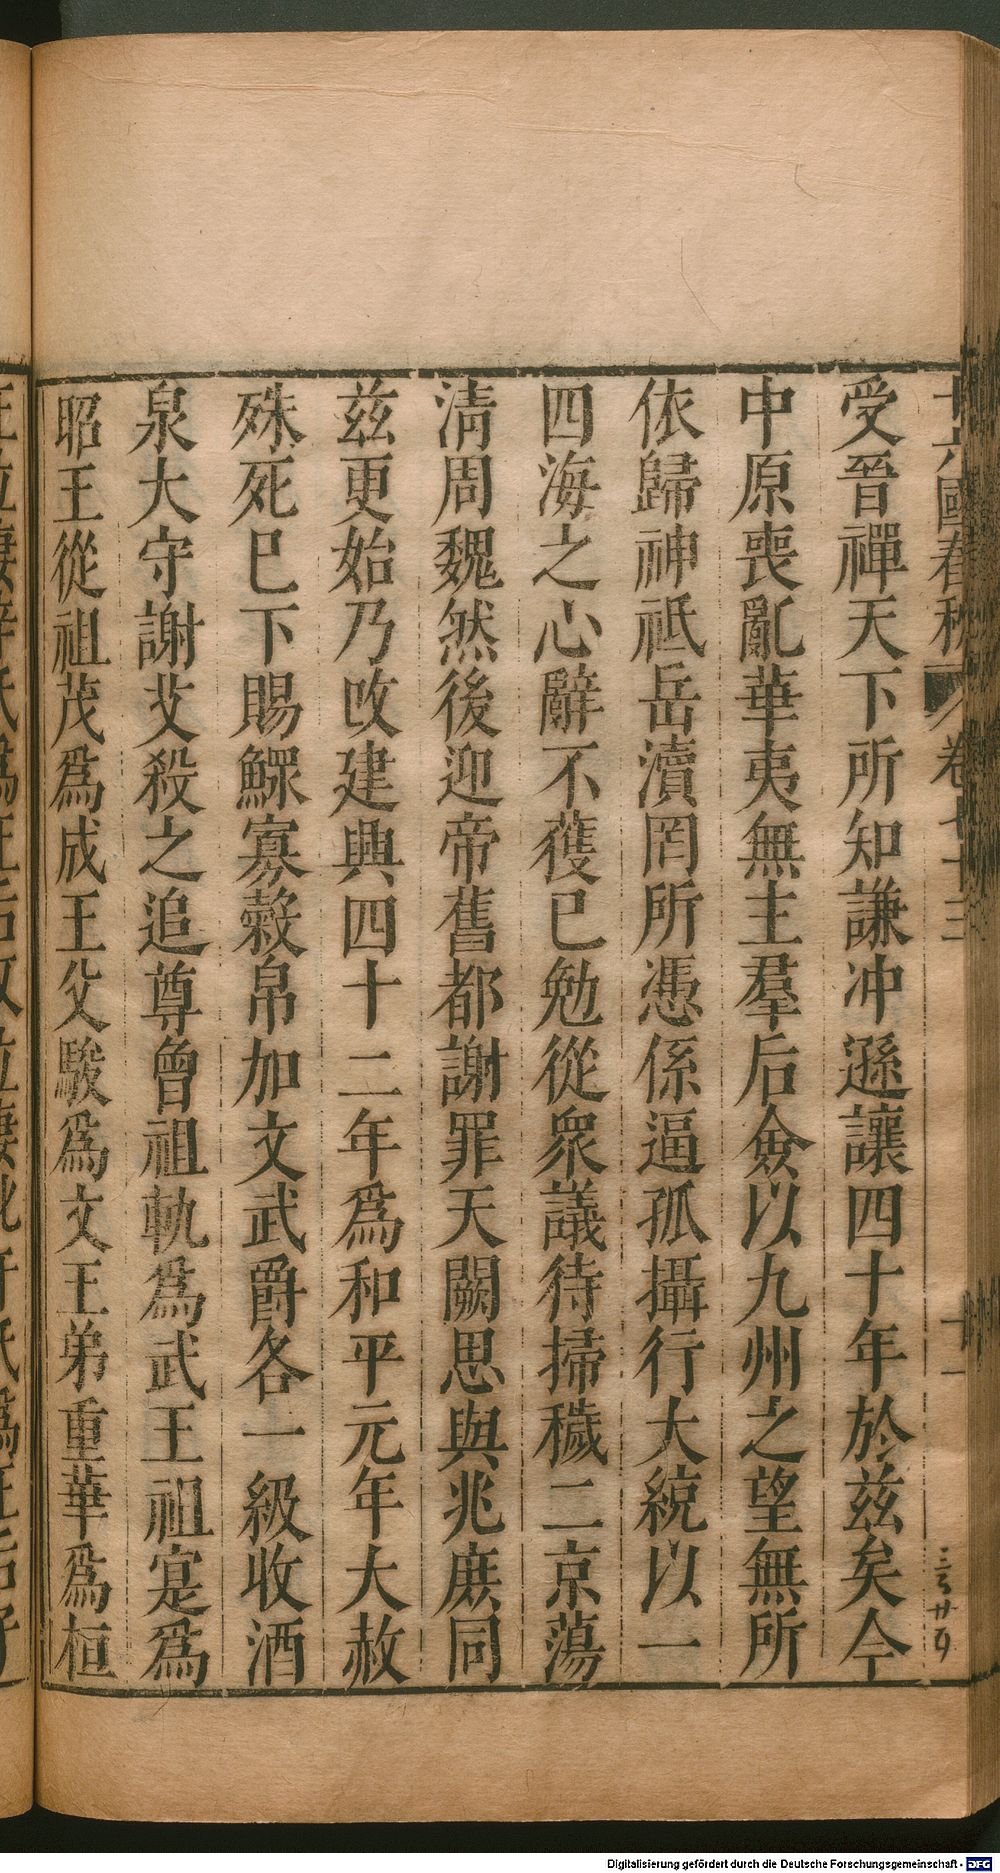 十六國春秋 卷七十三 十一
受晉禪天下所知謙冲遜讓四十年於茲矣今
中原喪亂華夷無主羣后僉以九州之望無所
依歸神祇岳瀆罔所憑係逼孤攝行大統以一
四海之心辭不獲已勉從衆議待掃穢二京蕩
清周魏然後迎帝舊都謝罪天闕思與兆庶同
茲更始乃改建興四十二年爲和平元年大赦
殊死已下賜鰥寡穀帛加文武爵各一級收酒
泉大守謝艾殺之追尊曾祖軌爲武王祖寔爲
昭王從祖茂爲成王父駿爲文王弟重華爲桓
Digitalisierung gefördert durch die Deutsche Forschungsgemeinschaft - DFG